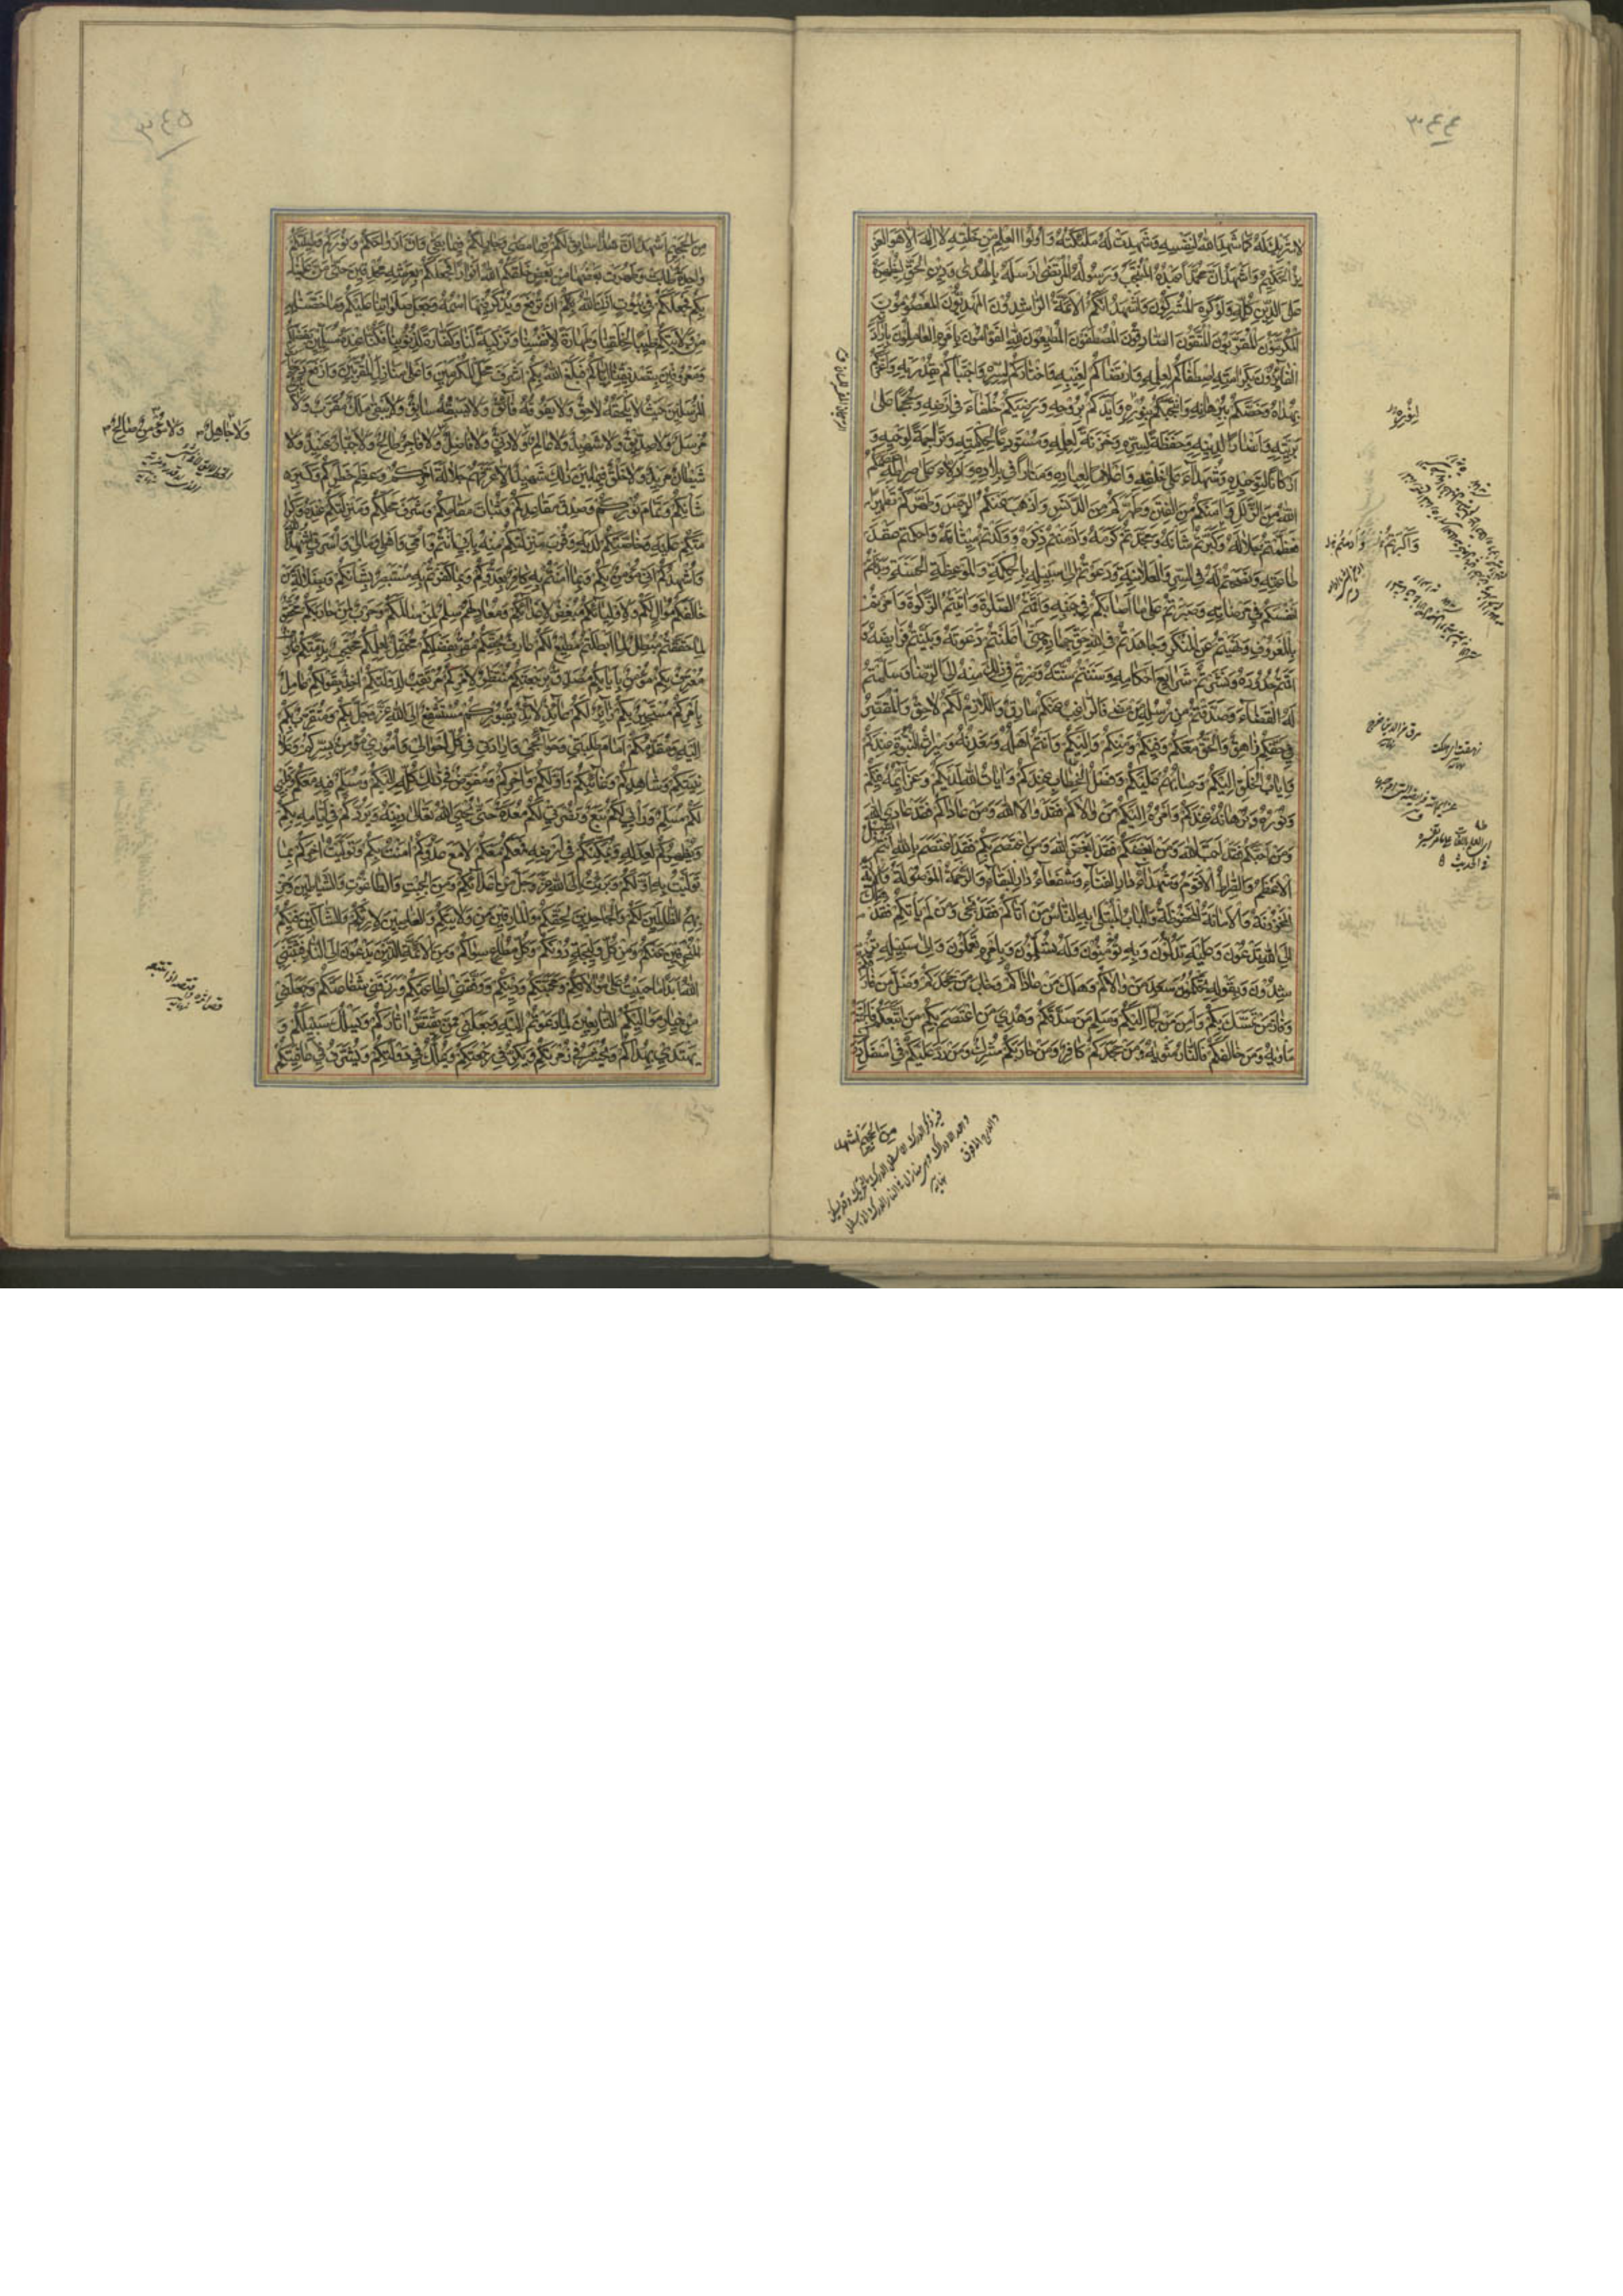 ٣٤٤
لا شَرِيكَ لَهُ كَمَا شَهِدَ اللهُ لِنَفْسِهِ وَشَهِدَتْ لَهُ مَلٰئِكَتُهُ وَاُولُوا العِلْمِ مِنْ خَلْقِهِ لا اِلٰهَ اِلَّا هُوَ العَزِ
يزُ الحَكِيمُ وَاَشْهَدُ اَنَّ مُحَمَّدًا عَبْدُهُ المُنْتَجَبُ وَرَسُولُهُ المُرْتَضٰى اَرْسَلَهُ بِالهُدٰى وَدِينِ الحَقِّ لِيُظْهِرَهُ
عَلَى الدِّينِ كُلِّهِ وَلَوْ كَرِهَ المُشْرِكُونَ وَاَشْهَدُ اَنَّكُمُ الاَئِمَّةُ الرَّاشِدُونَ المَهْدِيُّونَ المَعْصُومُونَ
المُكَرَّمُونَ المُقَرَّبُونَ المُتَّقُونَ الصَّادِقُونَ المُصْطَفَوْنَ المُطِيعُونَ لِلّٰهِ القَوَّامُونَ بِاَمْرِهِ العَامِلُونَ بِاِرَادَ
الفَائِزُونَ بِكَرَامَتِهِ اصْطَفَاكُمْ بِعِلْمِهِ وَارْتَضَاكُمْ لِغَيْبِهِ وَاخْتَارَكُمْ لِسِرِّهِ وَاجْتَبَاكُمْ بِقُدْرَتِهِ وَاَعَزَّكُمْ
بِهُدَاهُ وَخَصَّكُمْ بِبُرْهَانِهِ وَانْتَجَبَكُمْ بِنُورِهِ وَاَيَّدَكُمْ بِرُوحِهِ وَرَضِيَكُمْ خُلَفَاءَ فِي اَرْضِهِ وَحُجَجًا عَلٰى
بَرِيَّتِهِ وَاَنْصَارًا لِدِينِهِ وَحَفَظَةً لِسِرِّهِ وَخَزَنَةً لِعِلْمِهِ وَمُسْتَوْدَعًا لِحِكْمَتِهِ وَتَرَاجِمَةً لِوَحْيِهِ وَ
اَرْكَانًا لِتَوْحِيدِهِ وَشُهَدَاءَ عَلٰى خَلْقِهِ وَاَعْلَامًا لِعِبَادِهِ وَمَنَارًا فِي بِلَادِهِ وَاَدِلَّاءَ عَلٰى صِرَاطِهِ عَصَمَكُمُ
اللهُ مِنَ الزَّلَلِ وَاٰمَنَكُمْ مِنَ الفِتَنِ وَطَهَّرَكُمْ مِنَ الدَّنَسِ وَاَذْهَبَ عَنْكُمُ الرِّجْسَ وَطَهَّرَكُمْ تَطْهِيرًا
فَعَظَّمْتُمْ جَلَالَهُ وَكَبَّرْتُمْ شَأْنَهُ وَمَجَّدْتُمْ كَرَمَهُ وَاَدْمَنْتُمْ ذِكْرَهُ وَوَكَّدْتُمْ مِيثَاقَهُ وَاَحْكَمْتُمْ عَقْدَ
طَاعَتِهِ وَنَصَحْتُمْ لَهُ فِي السِّرِّ وَالعَلَانِيَةِ وَدَعَوْتُمْ اِلٰى سَبِيلِهِ بِالحِكْمَةِ وَالمَوْعِظَةِ الحَسَنَةِ وَبَذَلْتُمْ
اَنْفُسَكُمْ فِي مَرْضَاتِهِ وَصَبَرْتُمْ عَلٰى مَا اَصَابَكُمْ فِي جَنْبِهِ وَاَقَمْتُمُ الصَّلٰوةَ وَاٰتَيْتُمُ الزَّكٰوةَ وَاَمَرْتُمْ
بِالمَعْرُوفِ وَنَهَيْتُمْ عَنِ المُنْكَرِ وَجَاهَدْتُمْ فِي اللهِ حَقَّ جِهَادِهِ حَتّٰى اَعْلَنْتُمْ دَعْوَتَهُ وَبَيَّنْتُمْ فَرَايِضَهُ وَ
اَقَمْتُمْ حُدُودَهُ وَنَشَرْتُمْ شَرَايِعَ اَحْكَامِهِ وَسَنَنْتُمْ سُنَّتَهُ وَصِرْتُمْ فِي ذٰلِكَ مِنْهُ اِلَى الرِّضَا وَسَلَّمْتُمْ
لَهُ القَضَاءَ وَصَدَّقْتُمْ مِنْ رُسُلِهِ مَنْ مَضٰى فَالرَّاغِبُ عَنْكُمْ مَارِقٌ وَاللَّازِمُ لَكُمْ لَاحِقٌ وَالمُقَصِّرُ
فِي حَقِّكُمْ زَاهِقٌ وَالحَقُّ مَعَكُمْ وَفِيكُمْ وَمِنْكُمْ وَاِلَيْكُمْ وَاَنْتُمْ اَهْلُهُ وَمَعْدِنُهُ وَمِيرَاثُ النُّبُوَّةِ عِنْدَكُمْ
وَاِيَابُ الخَلْقِ اِلَيْكُمْ وَحِسَابُهُمْ عَلَيْكُمْ وَفَصْلُ الخِطَابِ عِنْدَكُمْ وَاٰيَاتُ اللهِ لَدَيْكُمْ وَعَزَائِمُهُ فِيكُمْ
وَنُورُهُ وَبُرْهَانُهُ عِنْدَكُمْ وَاَمْرُهُ اِلَيْكُمْ مَنْ وَالَاكُمْ فَقَدْ وَالَى اللهَ وَمَنْ عَادَاكُمْ فَقَدْ عَادَى اللهَ
وَمَنْ اَحَبَّكُمْ فَقَدْ اَحَبَّ اللهَ وَمَنْ اَبْغَضَكُمْ فَقَدْ اَبْغَضَ اللهَ وَمَنِ اعْتَصَمَ بِكُمْ فَقَدِ اعْتَصَمَ بِاللهِ اَنْتُمُ السَّبِيلُ
الاَعْظَمُ وَالصِّرَاطُ الاَقْوَمُ وَشُهَدَاءُ دَارِ الفَنَاءِ وَشُفَعَاءُ دَارِ البَقَاءِ وَالرَّحْمَةُ المَوْصُولَةُ وَالاٰيَةُ
المَخْزُونَةُ وَالاَمَانَةُ المَحْفُوظَةُ وَالبَابُ المُبْتَلٰى بِهِ النَّاسُ مَنْ اَتَاكُمْ فَقَدْ نَجٰى وَمَنْ لَمْ يَأْتِكُمْ فَقَدْ هَلَكَ
اِلَى اللهِ تَدْعُونَ وَعَلَيْهِ تَدُلُّونَ وَبِهِ تُؤْمِنُونَ وَلَهُ تُسَلِّمُونَ وَبِاَمْرِهِ تَعْمَلُونَ وَاِلٰى سَبِيلِهِ تُرْ
شِدُونَ وَبِقَوْلِهِ تَحْكُمُونَ سَعِدَ مَنْ وَالَاكُمْ وَهَلَكَ مَنْ عَادَاكُمْ وَخَابَ مَنْ جَحَدَكُمْ وَضَلَّ مَنْ فَارَقَكُمْ
وَفَازَ مَنْ تَمَسَّكَ بِكُمْ وَاَمِنَ مَنْ لَجَأَ اِلَيْكُمْ وَسَلِمَ مَنْ صَدَّقَكُمْ وَهُدِيَ مَنِ اعْتَصَمَ بِكُمْ مَنِ اتَّبَعَكُمْ فَالجَنَّةُ
مَأْوٰيهُ وَمَنْ خَالَفَكُمْ فَالنَّارُ مَثْوٰيهُ وَمَنْ جَحَدَكُمْ كَافِرٌ وَمَنْ حَارَبَكُمْ مُشْرِكٌ وَمَنْ رَدَّ عَلَيْكُمْ فِي اَسْفَلِ دَرَكٍ
مِنَ الجَحِيمِ اَشْهَدُ
٣٤٥
مِنَ الجَحِيمِ اَشْهَدُ اَنَّ هٰذَا سَابِقٌ لَكُمْ فِيمَا مَضٰى وَجَارٍ لَكُمْ فِيمَا بَقِيَ وَاَنَّ اَرْوَاحَكُمْ وَنُورَكُمْ وَطِينَتَكُمْ
وَاحِدَةٌ طَابَتْ وَطَهُرَتْ بَعْضُهَا مِنْ بَعْضٍ خَلَقَكُمُ اللهُ اَنْوَارًا فَجَعَلَكُمْ بِعَرْشِهِ مُحْدِقِينَ حَتّٰى مَنَّ عَلَيْنَا
بِكُمْ فَجَعَلَكُمْ فِي بُيُوتٍ اَذِنَ اللهُ اَنْ تُرْفَعَ وَيُذْكَرَ فِيهَا اسْمُهُ وَجَعَلَ صَلَوَاتِنَا عَلَيْكُمْ وَمَا خَصَّنَا بِهِ
مِنْ وَلَايَتِكُمْ طِيبًا لِخَلْقِنَا وَطَهَارَةً لِاَنْفُسِنَا وَتَزْكِيَةً لَنَا وَكَفَّارَةً لِذُنُوبِنَا فَكُنَّا عِنْدَهُ مُسَلِّمِينَ بِفَضْلِكُمْ
وَمَعْرُوفِينَ بِتَصْدِيقِنَا اِيَّاكُمْ فَبَلَغَ اللهُ بِكُمْ اَشْرَفَ مَحَلِّ المُكَرَّمِينَ وَاَعْلٰى مَنَازِلِ المُقَرَّبِينَ وَاَرْفَعَ دَرَجَاتِ
المُرْسَلِينَ حَيْثُ لَا يَلْحَقُهُ لَاحِقٌ وَلَا يَفُوقُهُ فَائِقٌ وَلَا يَسْبِقُهُ سَابِقٌ وَلَا يَبْقٰى مَلَكٌ مُقَرَّبٌ وَلَا نَبِيٌّ
مُرْسَلٌ وَلَا صِدِّيقٌ وَلَا شَهِيدٌ وَلَا عَالِمٌ وَلَا دَنِيٌّ وَلَا فَاضِلٌ وَلَا فَاجِرٌ طَالِحٌ وَلَا جَبَّارٌ عَنِيدٌ وَلَا
وَلَا جَاهِلٌ وَلَا مُؤْمِنٌ صَالِحٌ
شَيْطَانٌ مَرِيدٌ وَلَا خَلْقٌ فِيمَا بَيْنَ ذٰلِكَ شَهِيدٌ اِلَّا عَرَّفَهُمْ جَلَالَةَ اَمْرِكُمْ وَعِظَمَ خَطَرِكُمْ وَكِبَرَ
شَأْنِكُمْ وَتَمَامَ نُورِكُمْ وَصِدْقَ مَقَاعِدِكُمْ وَثَبَاتَ مَقَامِكُمْ وَشَرَفَ مَحَلِّكُمْ وَمَنْزِلَتِكُمْ عِنْدَهُ وَكَرَا
مَتَكُمْ عَلَيْهِ وَخَاصَّتَكُمْ لَدَيْهِ وَقُرْبَ مَنْزِلَتِكُمْ مِنْهُ بِاَبِي اَنْتُمْ وَاُمِّي وَاَهْلِي وَمَالِي وَاُسْرَتِي اُشْهِدُ اللهَ
وَاُشْهِدُكُمْ اَنِّي مُؤْمِنٌ بِكُمْ وَبِمَا اٰمَنْتُمْ بِهِ كَافِرٌ بِعَدُوِّكُمْ وَبِمَا كَفَرْتُمْ بِهِ مُسْتَبْصِرٌ بِشَأْنِكُمْ وَبِضَلَالَةِ مَنْ
خَالَفَكُمْ مُوَالٍ لَكُمْ وَلِاَوْلِيَائِكُمْ مُبْغِضٌ لِاَعْدَائِكُمْ وَمُعَادٍ لَهُمْ سِلْمٌ لِمَنْ سَالَمَكُمْ وَحَرْبٌ لِمَنْ حَارَبَكُمْ مُحَقِّقٌ
لِمَا حَقَّقْتُمْ مُبْطِلٌ لِمَا اَبْطَلْتُمْ مُطِيعٌ لَكُمْ عَارِفٌ بِحَقِّكُمْ مُقِرٌّ بِفَضْلِكُمْ مُحْتَمِلٌ لِعِلْمِكُمْ مُحْتَجِبٌ بِذِمَّتِكُمْ
مُعْتَرِفٌ بِكُمْ مُؤْمِنٌ بِاِيَابِكُمْ مُصَدِّقٌ بِرَجْعَتِكُمْ مُنْتَظِرٌ لِاَمْرِكُمْ مُرْتَقِبٌ لِدَوْلَتِكُمْ اٰخِذٌ بِقَوْلِكُمْ عَامِلٌ
بِاَمْرِكُمْ مُسْتَجِيرٌ بِكُمْ زَائِرٌ لَكُمْ عَائِذٌ لَائِذٌ بِقُبُورِكُمْ مُسْتَشْفِعٌ اِلَى اللهِ عَزَّ وَجَلَّ بِكُمْ وَمُتَقَرِّبٌ بِكُمْ
اِلَيْهِ وَمُقَدِّمُكُمْ اَمَامَ طَلِبَتِي وَحَوَائِجِي وَاِرَادَتِي فِي كُلِّ اَحْوَالِي وَاُمُورِي مُؤْمِنٌ بِسِرِّكُمْ وَعَلَا
نِيَتِكُمْ وَشَاهِدِكُمْ وَغَائِبِكُمْ وَاَوَّلِكُمْ وَاٰخِرِكُمْ وَمُفَوِّضٌ فِي ذٰلِكَ كُلِّهِ اِلَيْكُمْ وَمُسَلِّمٌ فِيهِ مَعَكُمْ وَقَلْبِي
لَكُمْ مُسَلِّمٌ وَرَأْيِي لَكُمْ تَبَعٌ وَنُصْرَتِي لَكُمْ مُعَدَّةٌ حَتّٰى يُحْيِيَ اللهُ تَعَالٰى دِينَهُ بِكُمْ وَيَرُدَّكُمْ فِي اَيَّامِهِ
وَيُظْهِرَكُمْ لِعَدْلِهِ وَيُمَكِّنَكُمْ فِي اَرْضِهِ فَمَعَكُمْ مَعَكُمْ لَا مَعَ عَدُوِّكُمْ اٰمَنْتُ بِكُمْ وَتَوَلَّيْتُ اٰخِرَكُمْ بِمَا
تَوَلَّيْتُ بِهِ اَوَّلَكُمْ وَبَرِئْتُ اِلَى اللهِ عَزَّ وَجَلَّ مِنْ اَعْدَائِكُمْ وَمِنَ الجِبْتِ وَالطَّاغُوتِ وَالشَّيَاطِينِ وَحِزْ
بِهِمُ الظَّالِمِينَ لَكُمْ وَالجَاحِدِينَ لِحَقِّكُمْ وَالمَارِقِينَ مِنْ وَلَايَتِكُمْ وَالغَاصِبِينَ لِاِرْثِكُمْ وَالشَّاكِّينَ فِيكُمْ
المُنْحَرِفِينَ عَنْكُمْ وَمِنْ كُلِّ وَلِيجَةٍ دُونَكُمْ وَكُلِّ مُطَاعٍ سِوَاكُمْ وَمِنَ الاَئِمَّةِ الَّذِينَ يَدْعُونَ اِلَى النَّارِ فَثَبَّتَنِيَ
اللهُ اَبَدًا مَا حَيِيتُ عَلٰى مُوَالَاتِكُمْ وَمَحَبَّتِكُمْ وَدِينِكُمْ وَوَفَّقَنِي لِطَاعَتِكُمْ وَرَزَقَنِي شَفَاعَتَكُمْ وَجَعَلَنِي
مِنْ خِيَارِ مَوَالِيكُمُ التَّابِعِينَ لِمَا دَعَوْتُمْ اِلَيْهِ وَجَعَلَنِي مِمَّنْ يَقْتَصُّ اٰثَارَكُمْ وَيَسْلُكُ سَبِيلَكُمْ وَ
يَهْتَدِي بِهُدَاكُمْ وَيُحْشَرُ فِي زُمْرَتِكُمْ وَيَكُرُّ فِي رَجْعَتِكُمْ وَيُمَلَّكُ فِي دَوْلَتِكُمْ وَيُشَرَّفُ فِي عَافِيَتِكُمْ